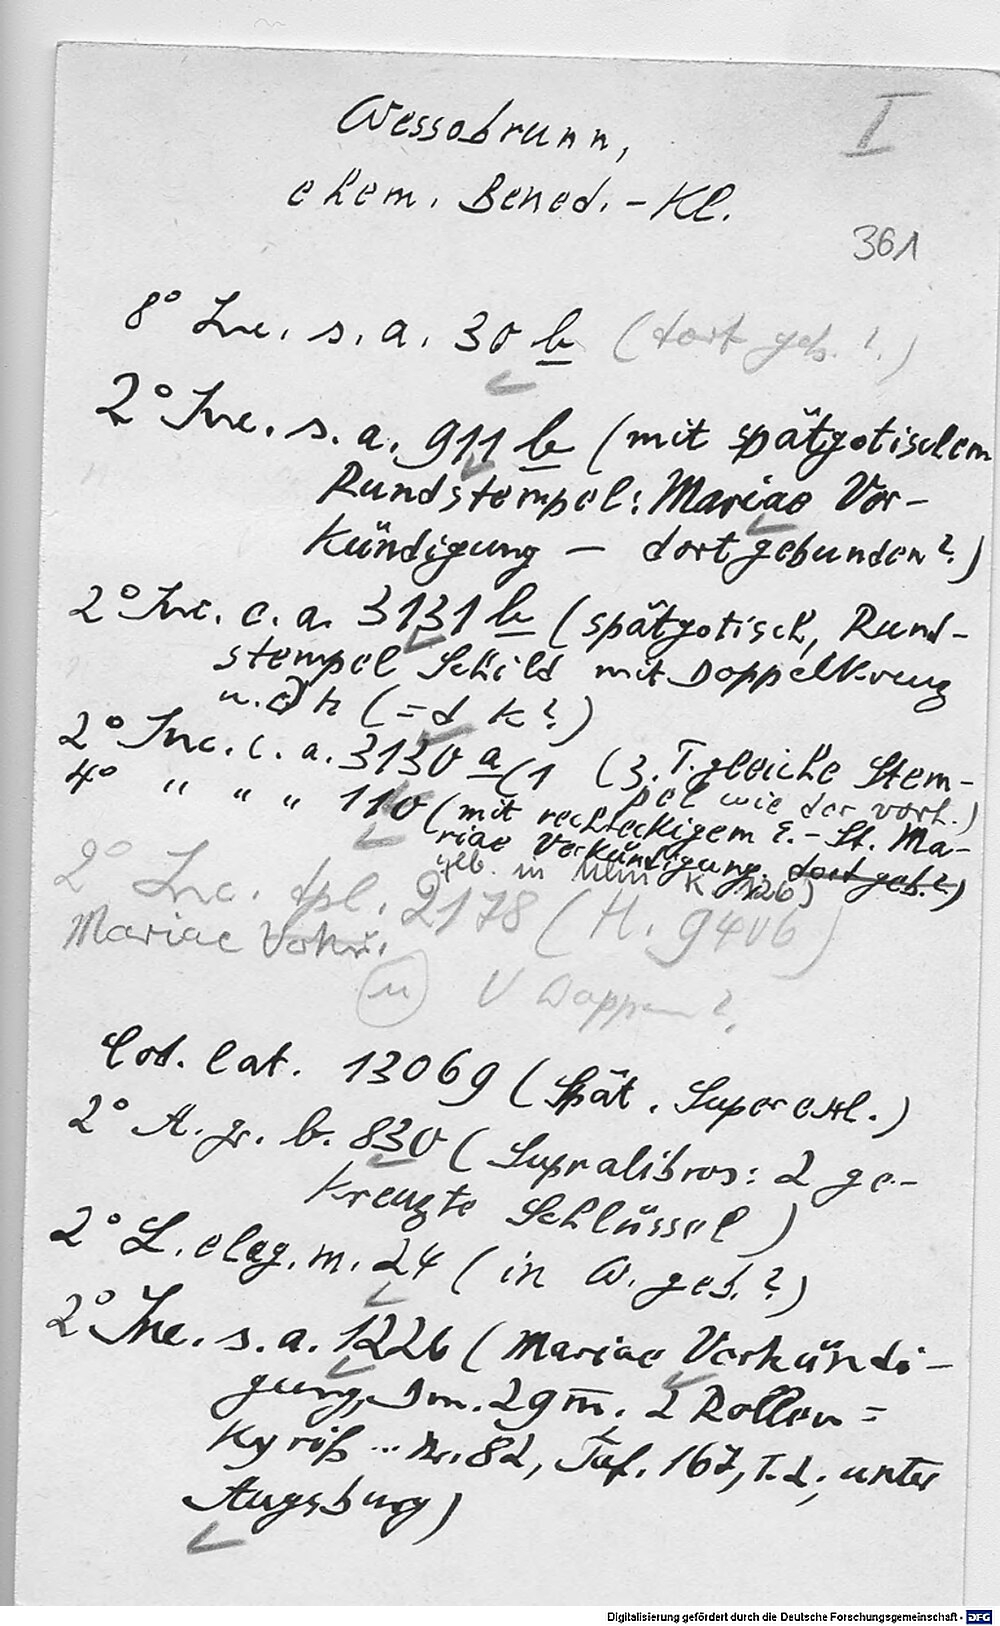 Wessobrunn,
I
ehem. Bened.-Kl.
361
8° Inc. s. a. 30 b (dort geb.?)
2° Inc. s. a. 911 b (mit spätgotischem
Rundstempel: Mariae Ver-
kündigung – dort gebunden?)
2° Inc. c. a. 3131 b (spätgotisch, Rund-
stempel Schild mit Doppelkreuz
u. d h (= d k?)
2° Inc. c. a. 3130 a (1 (3. T. gleiche Stem-
pel wie der vorh.)
4° " " " 110 (mit rechteckigem E.-St. Ma-
riae Verkündigung. dort geb.?)
geb. in Ulm K 126)
2° Inc. 2178 (H. 9406)
Mariae Verkü.
(u) V Wappen?
Cod. lat. 13069 (Spät. Superexl.)
2° A. gr. b. 830 (Supralibros: 2 ge-
kreuzte Schlüssel)
2° L. eleg. m. 24 (in W. geb.?)
2° Inc. s. a. 1226 (Mariae Verkündi-
gung, Dm. 29 m. 2 Rollen =
Kyriß .. Nr. 82, Taf. 167, T. 2; unter
Augsburg)
Digitalisierung gefördert durch die Deutsche Forschungsgemeinschaft - DFG